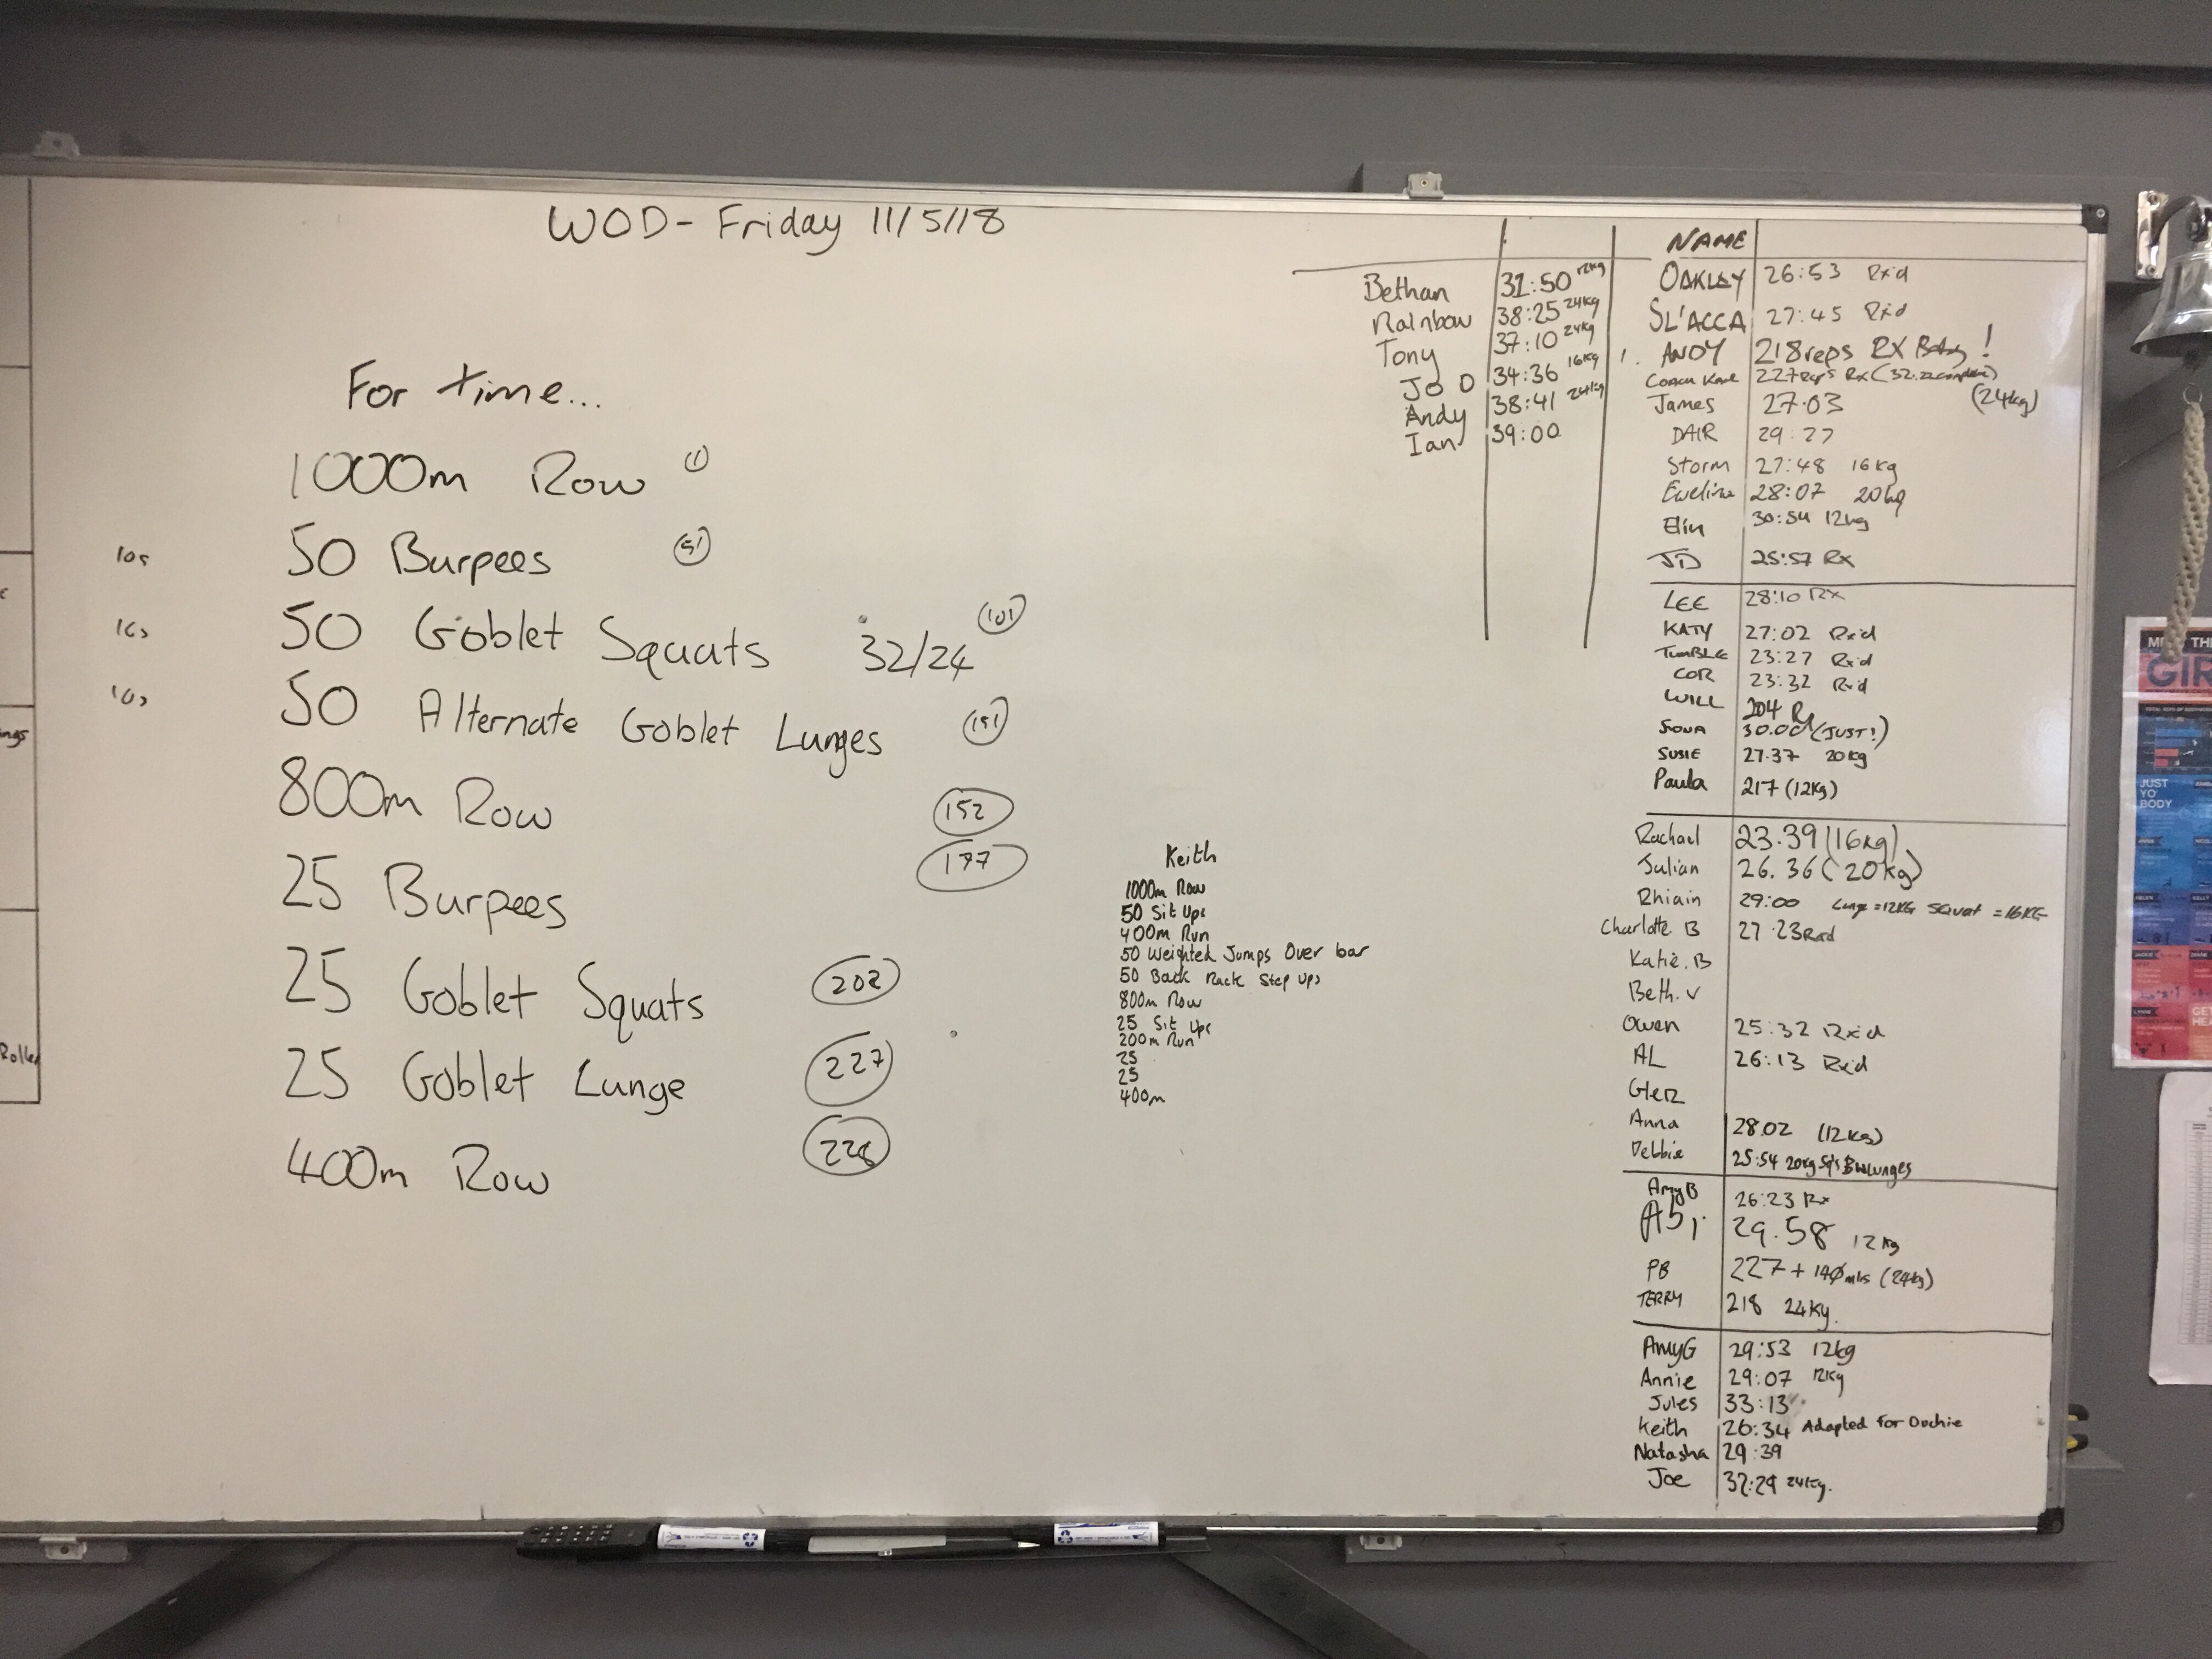 WOD - Friday 11/5/18
For time...
1000m Row (1)
50 Burpees (51)
50 Goblet Squats 32/24 (101)
50 Alternate Goblet Lunges (151)
800m Row (152)
25 Burpees (177)
25 Goblet Squats (202)
25 Goblet Lunge (227)
400m Row (228)
10s
Keith
1000m Row
50 Sit Ups
400m Run
50 Weighted Jumps Over bar
50 Back Rack Step Ups
800m Row
25 Sit Ups
200m Run
25
25
400m
Bethan 31:50 12kg
Rainbow 38:25 24kg
Tony 37:10 24kg
Jo D 34:36 16kg
Andy 38:41 24kg
Ian 39:00
NAME
OAKLEY 26:53 Rx'd
SL'ACCA 27:45 Rx'd
ANDY 218reps RX !
Coach 227reps Rx (32.22 complete)
James 27.03 (24kg)
DAIR 29:27
Storm 27:48 16kg
Ewelina 28:07 20kg
Elin 30:54 12kg
JD 25:57 RX
LEE 28:10 RX
KATY 27:02 Rx'd
TUMBLE 23:27 Rx'd
COR 23:32 Rx'd
WILL 204 Rx
SIONA 30.00 (JUST!)
SUSIE 27.37 20kg
Paula 217 (12Kg)
Rachael 23.39 (16kg)
Julian 26.36 (20kg)
Rhiain 29:00 Lunge =12KG Squat =16KG
Charlotte. B 27.23 Rxd
Katie. B
Beth. V
Owen 25:32 Rx'd
AL 26:13 Rx'd
Ger
Anna 28.02 (12kg)
Debbie 25:54 20kg Sq's BW Lunges
Amy B 26:23 Rx
Abi 29.58 12kg
PB 227 + 140mtrs (24kg)
TERRY 218 24Kg.
AmyG 29:53 12kg
Annie 29:07 12kg
Jules 33:13
Keith 26:34 Adapted For Ouchie
Natasha 29:39
Joe 32:29 24kg.
ngs
Rolle
GIR
JUST
YO'
BODY